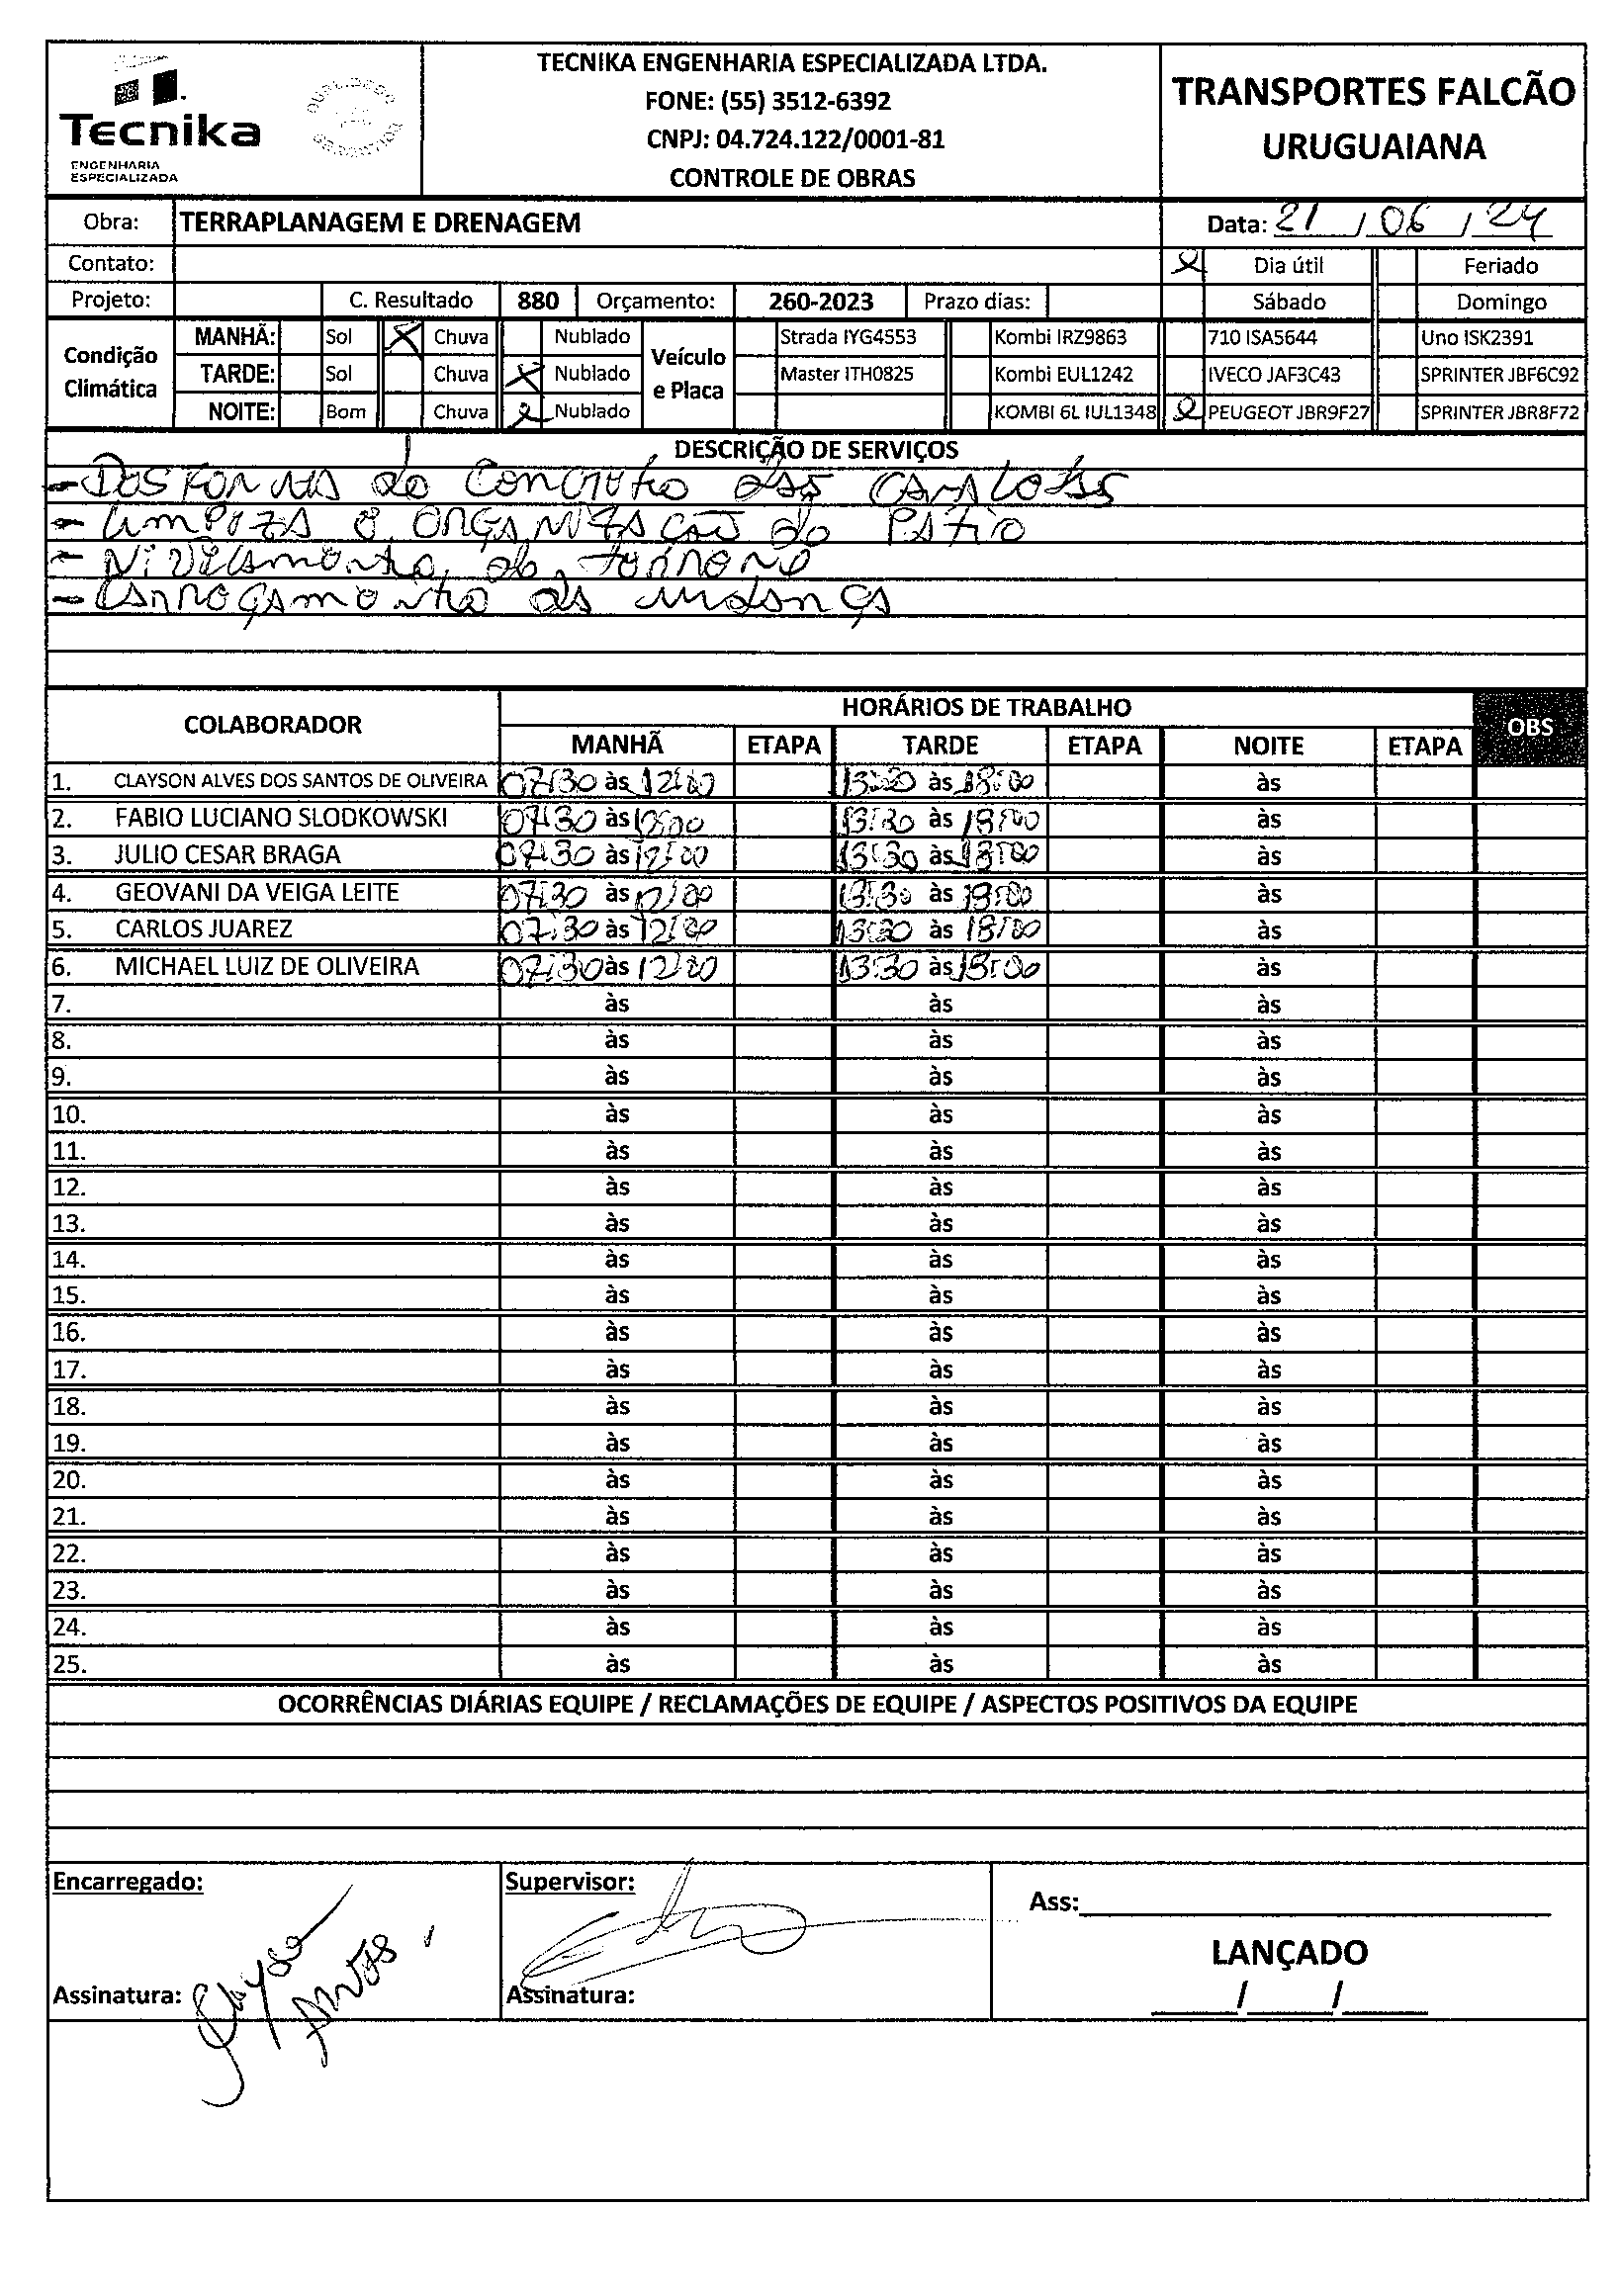 Tecnika
ENGENHARIA
ESPECIALIZADA
TECNIKA ENGENHARIA ESPECIALIZADA LTDA.
FONE: (55) 3512-6392
CNPJ: 04.724.122/0001-81
CONTROLE DE OBRAS
TRANSPORTES FALCÃO
URUGUAIANA
Obra: TERRAPLANAGEM E DRENAGEM Data: 21/06/24
Contato: Dia útil Feriado
Projeto: C. Resultado 880 Orçamento: 260-2023 Prazo dias: Sábado Domingo
Condição Climática
MANHÃ: Sol X Chuva Nublado Veículo e Placa Strada IYG4553 Kombi IRZ9863 710 ISA5644 Uno ISK2391
TARDE: Sol Chuva X Nublado Master ITH0825 Kombi EUL1242 IVECO JAF3C43 SPRINTER JBF6C92
NOITE: Bom Chuva X Nublado KOMBI 6L IUL1348 X PEUGEOT JBR9F27 SPRINTER JBR8F72
DESCRIÇÃO DE SERVIÇOS
- Desforma de Concreto das
- Limpeza e organização do Patio
- Nivelamento do terreno
- Carregamento da mudança
COLABORADOR HORÁRIOS DE TRABALHO OBS
MANHÃ ETAPA TARDE ETAPA NOITE ETAPA
1. CLAYSON ALVES DOS SANTOS DE OLIVEIRA 07:30 às 12:00 13:30 às 18:00 às
2. FABIO LUCIANO SLODKOWSKI 07:30 às 12:00 13:30 às 18:00 às
3. JULIO CESAR BRAGA 07:30 às 12:00 13:30 às 18:00 às
4. GEOVANI DA VEIGA LEITE 07:30 às 12:00 13:30 às 18:00 às
5. CARLOS JUAREZ 07:30 às 12:00 13:30 às 18:00 às
6. MICHAEL LUIZ DE OLIVEIRA 07:30 às 12:00 13:30 às 18:00 às
7. às às às
8. às às às
9. às às às
10. às às às
11. às às às
12. às às às
13. às às às
14. às às às
15. às às às
16. às às às
17. às às às
18. às às às
19. às às às
20. às às às
21. às às às
22. às às às
23. às às às
24. às às às
25. às às às
OCORRÊNCIAS DIÁRIAS EQUIPE / RECLAMAÇÕES DE EQUIPE / ASPECTOS POSITIVOS DA EQUIPE
Encarregado: Supervisor: Ass:
LANÇADO
Assinatura: Clayson Alves Assinatura: / /